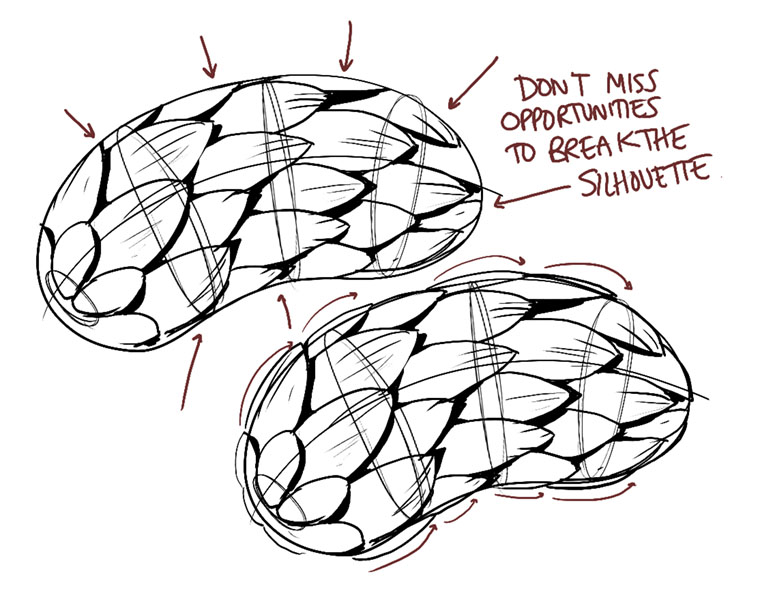 DON'T MISS
OPPORTUNITIES
TO BREAK THE
SILHOUETTE